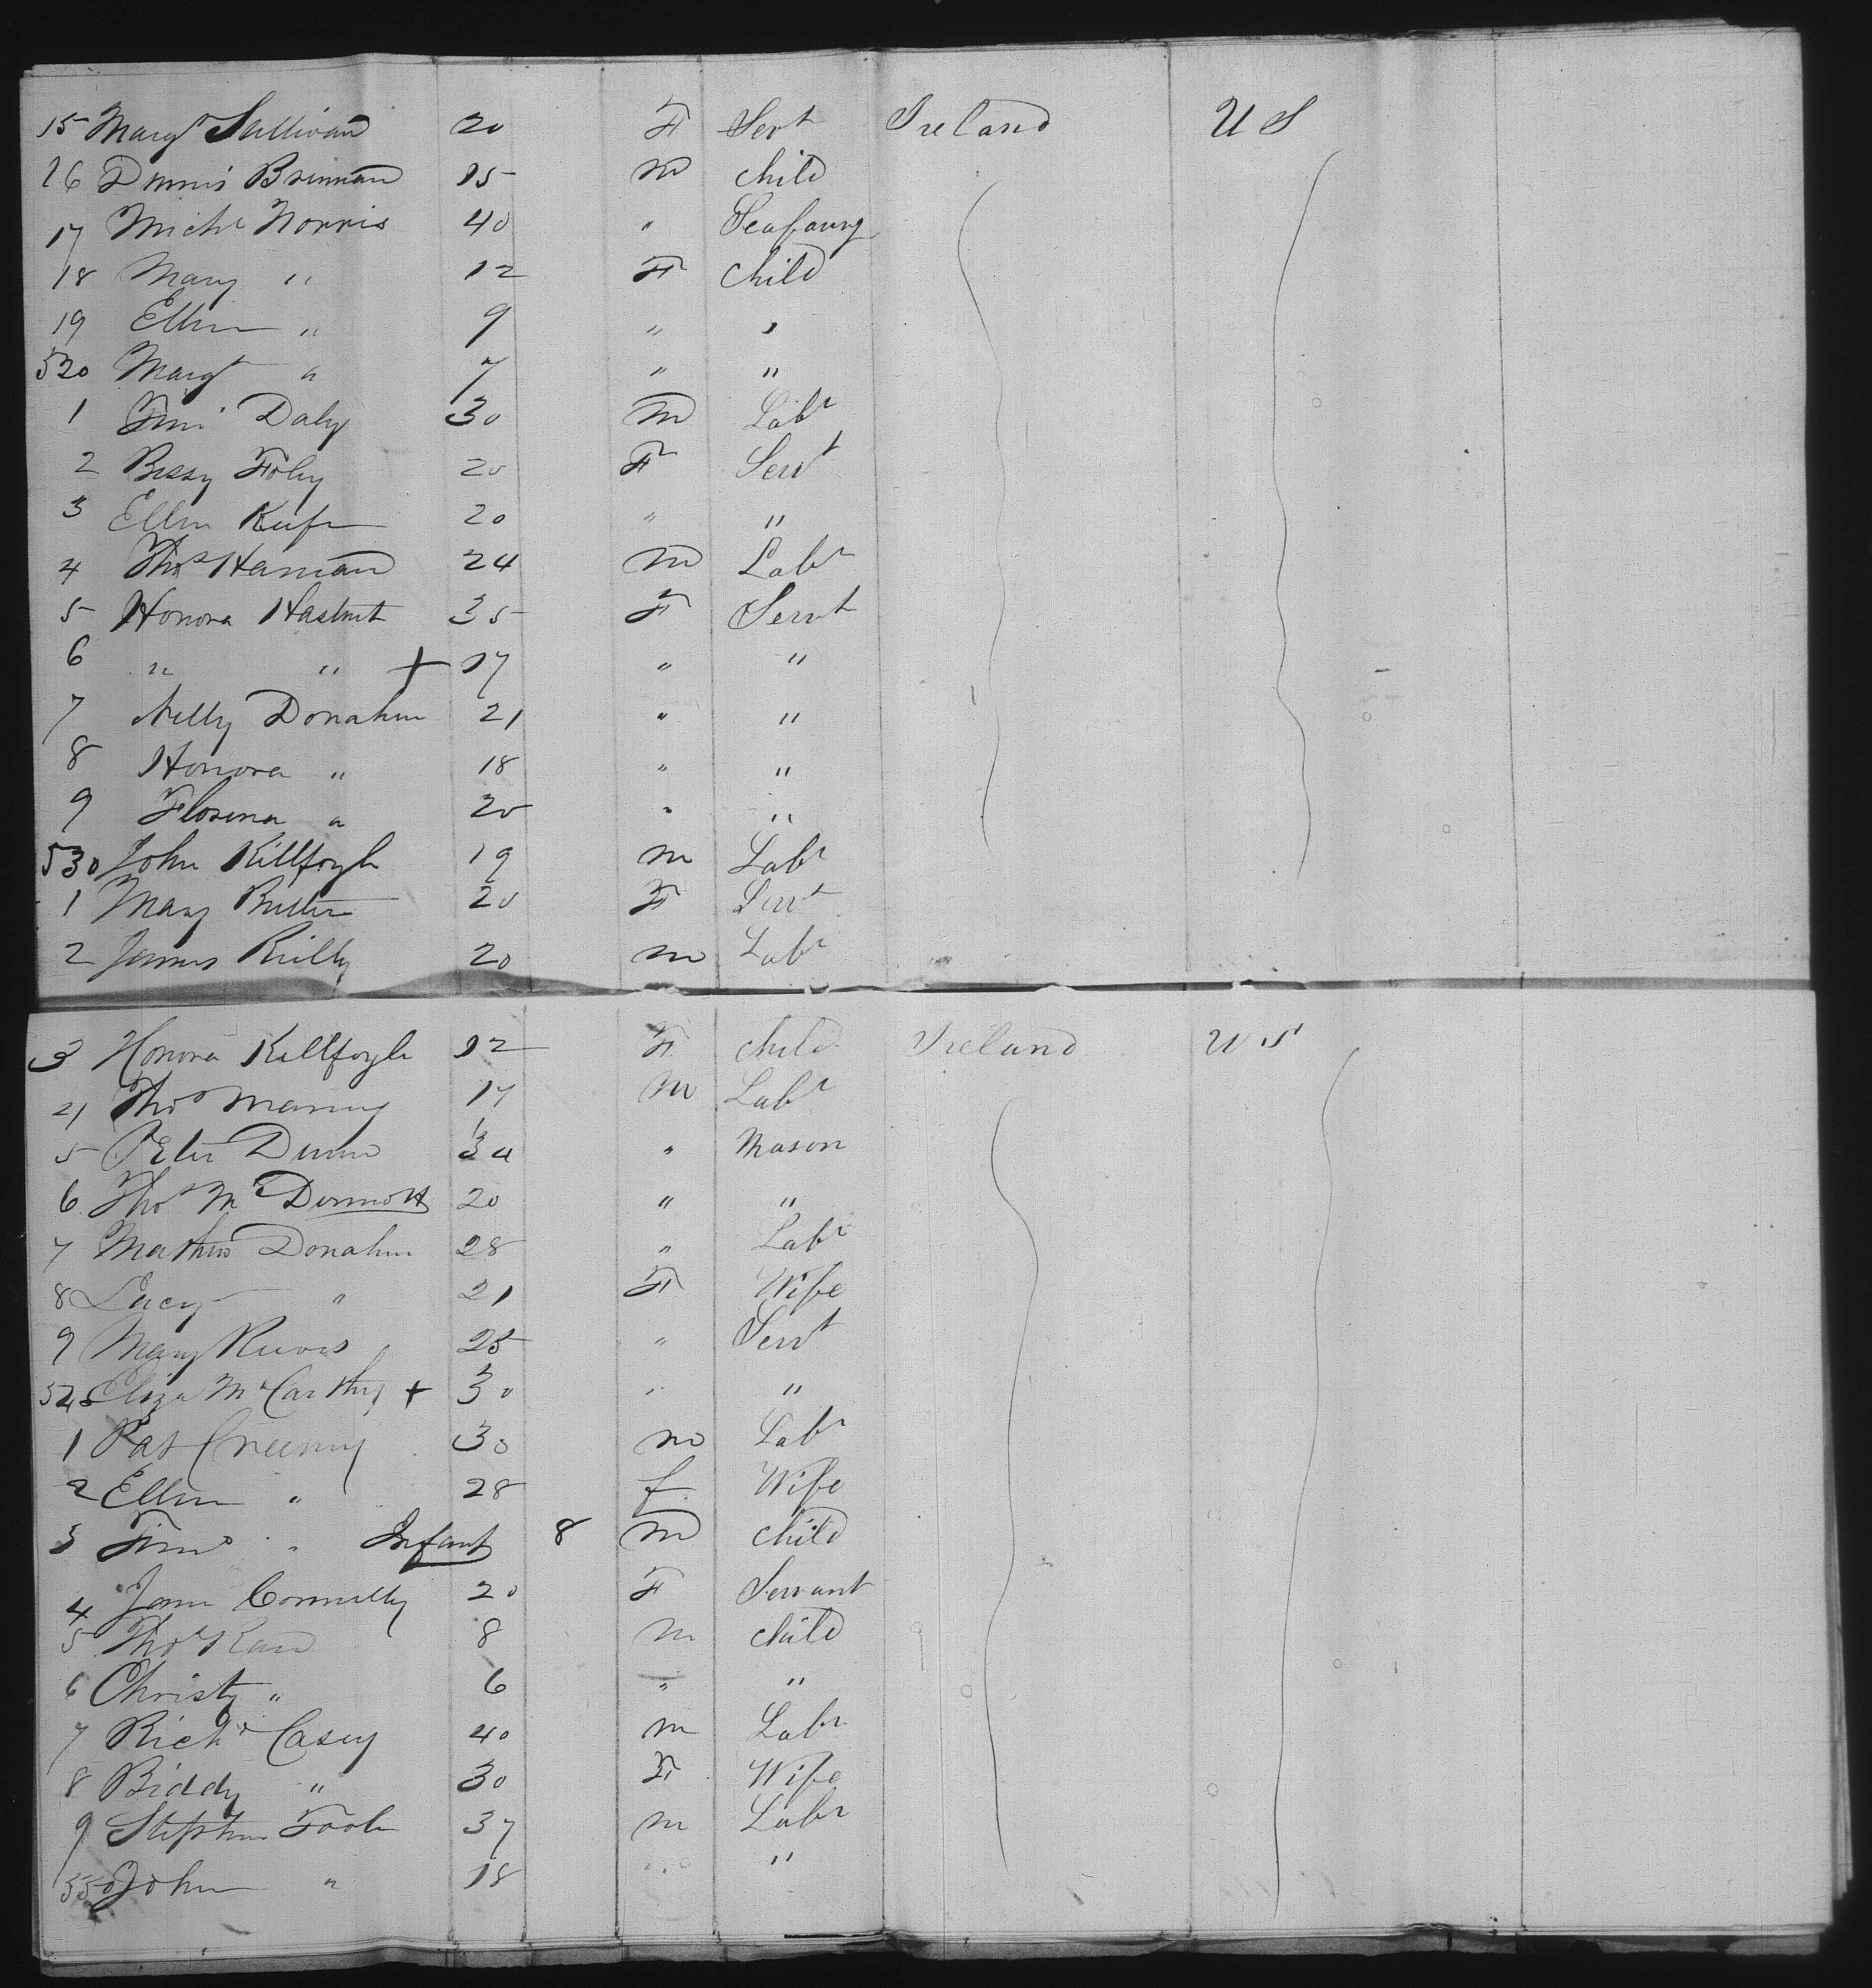 15 Margt Sullivan 20 F Servt Ireland U S
16 Dennis Brennan 15 M Child
17 Michl Norris 40 " Seafaring
18 Mary " 12 F Child
19 Ellen " 9 " "
520 Margt " 7 " "
1 Tim Daly 30 M Labr
2 Bessy Foley 20 F Servt
3 Ellen Keefe 20 " "
4 Thos Hanian 24 M Labr
5 Honora Haslent 35 F Servt
6 " " + 17 " "
7 Nelly Donahue 21 " "
8 Honora " 18 " "
9 Florena " 20 " "
530 John Killfoyle 19 M Labr
1 Mary Butler 20 F Servt
2 James Reilly 20 M Labr
3 Honora Killfoyle 12 F Child Ireland U S
4 Thos Manny 17 M Labr
5 Peter Dunn 34 " Mason
6 Thos McDermott 20 " "
7 Mathew Donahue 28 " Labr
8 Lucy " 21 F Wife
9 Mary Reeves 25 " Servt
540 Eliza McCarthy + 30 " "
1 Pat Creeny 30 M Labr
2 Ellen " 28 f Wife
3 Timo " Infant 8 M Child
4 Jane Connelly 20 F Servant
5 Thos Kane 8 M Child
6 Christy " 6 " "
7 Richd Casey 40 M Labr
8 Biddy " 30 F Wife
9 Stephen Toole 37 M Labr
550 John " 18 " "